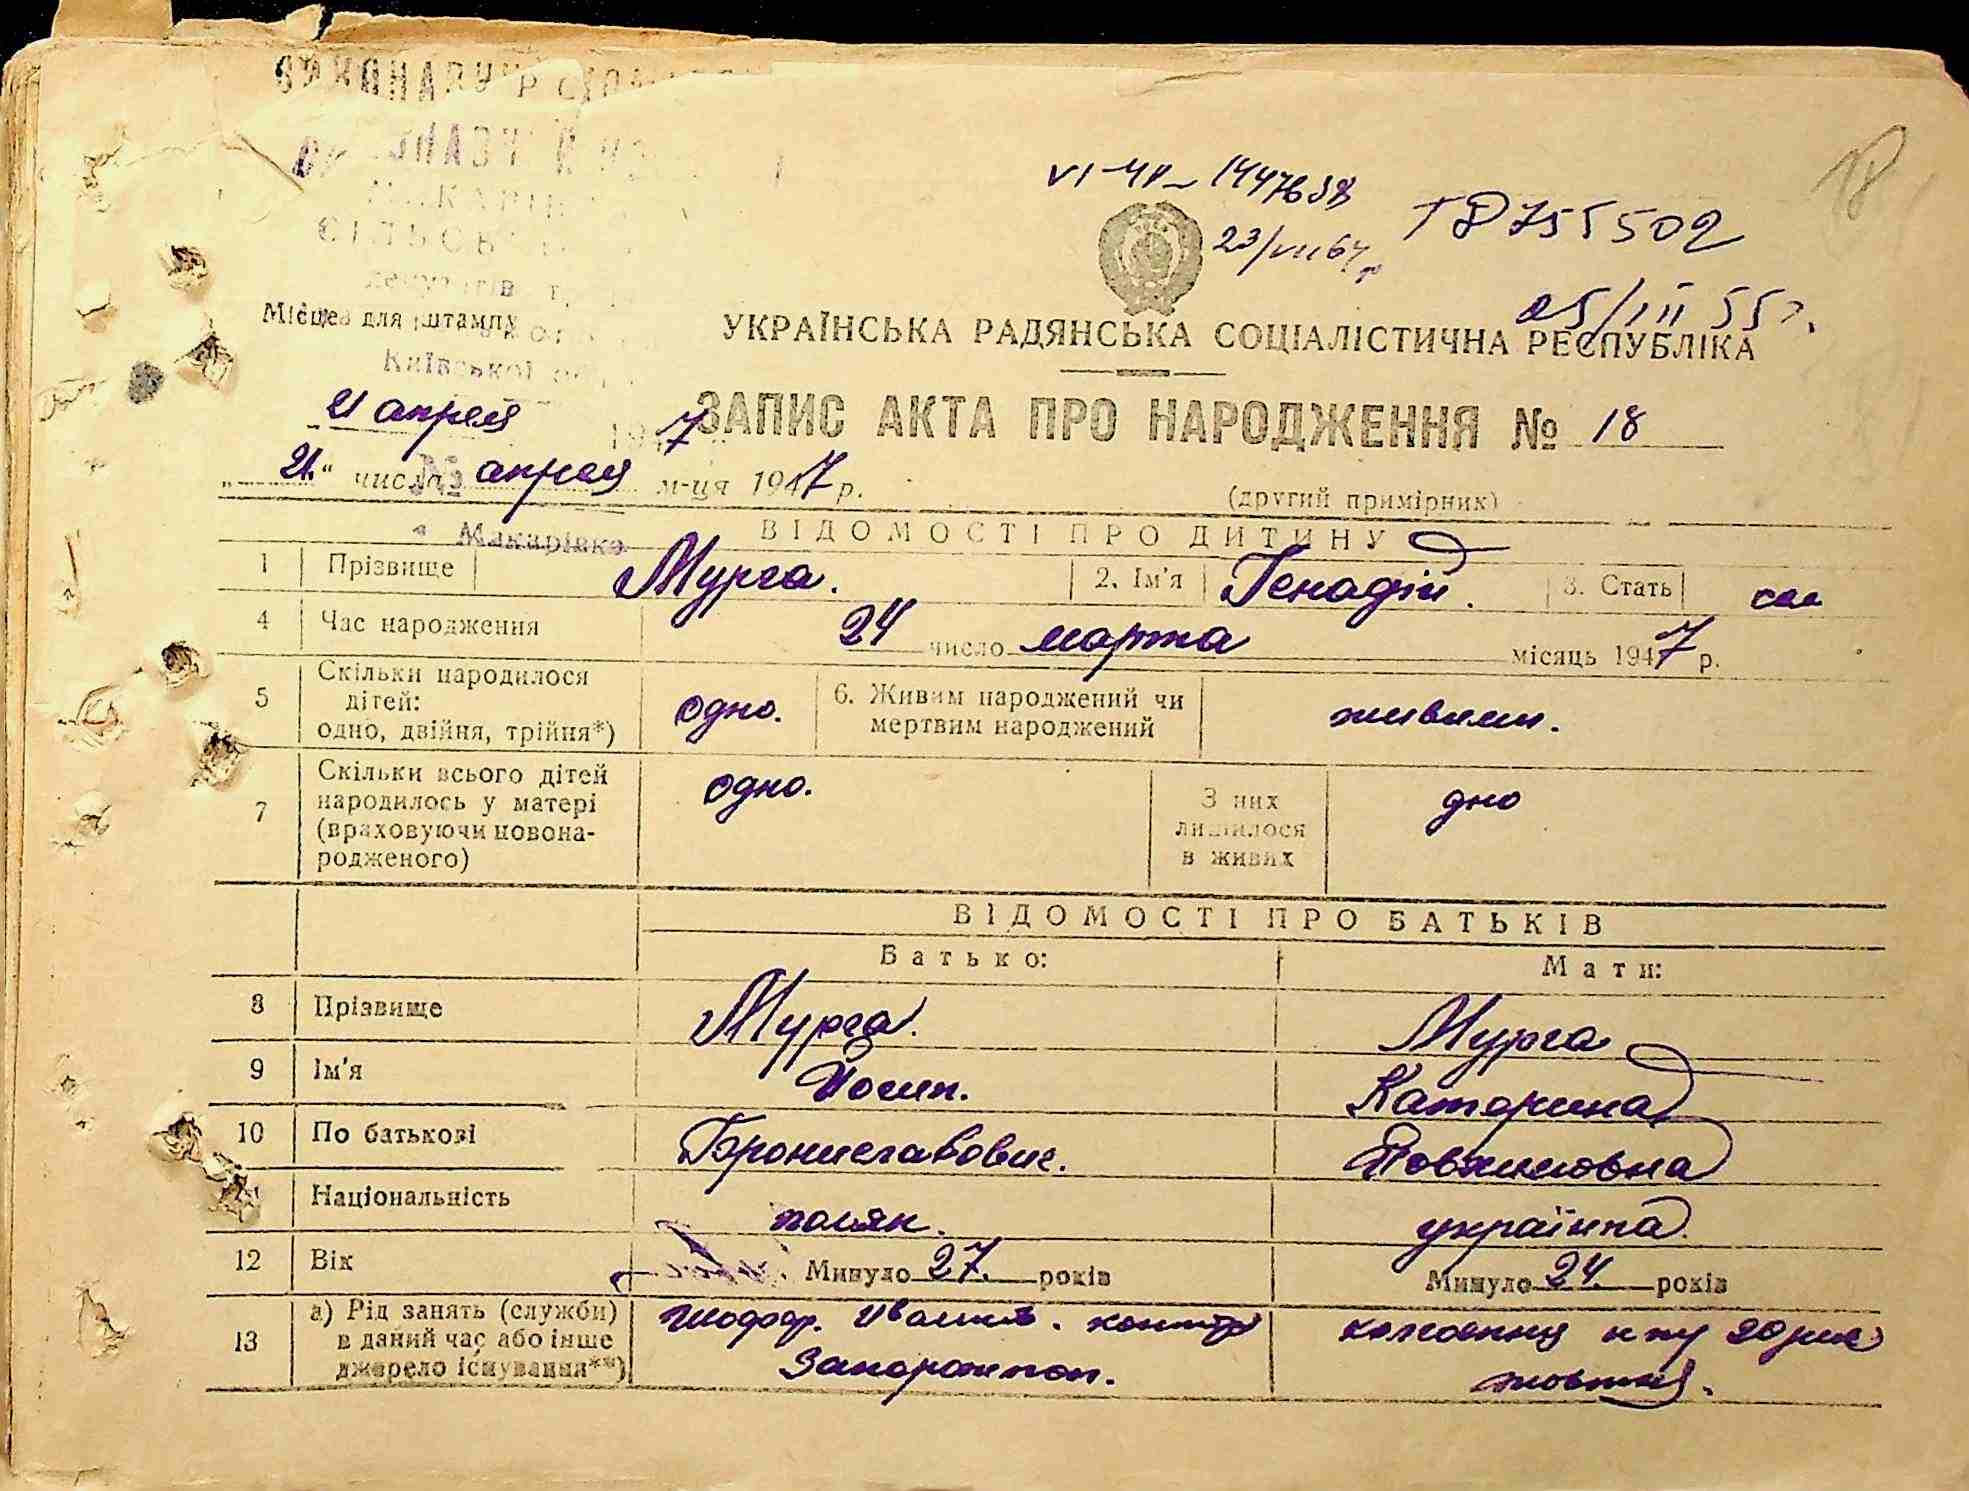 Місце для штампу
Київської
21 апреля 1947
№
Макарівка
VI-ЧП-
23/VII 64 р
ТР 755502
05/III 55 г.
18
УКРАЇНСЬКА РАДЯНСЬКА СОЦІАЛІСТИЧНА РЕСПУБЛІКА
ЗАПИС АКТА ПРО НАРОДЖЕННЯ № 18
„21.“ числа апреля м-ця 1947 р.
(другий примірник)
ВІДОМОСТІ ПРО ДИТИНУ
1 Прізвище Мурга. 2. Ім'я Генадій. 3. Стать
4 Час народження 24 число марта місяць 1947 р.
5 Скільки народилося
дітей:
одно, двійня, трійня*) одно. 6. Живим народжений чи
мертвим народжений живими.
7 Скільки всього дітей
народилось у матері
(враховуючи новона-
родженого) одно. З них
лишилося
в живих дно
ВІДОМОСТІ ПРО БАТЬКІВ
Батько: Мати:
8 Прізвище Мурга. Мурга
9 Ім'я Йосип. Катерина
10 По батькові Брониславович.
Національність поляк. українка.
12 Вік Минуло 27. років Минуло 24. років
13 а) Рід занять (служби)
в даний час або інше
джерело існування**) Шофор.
колгоспниця
жовтня.